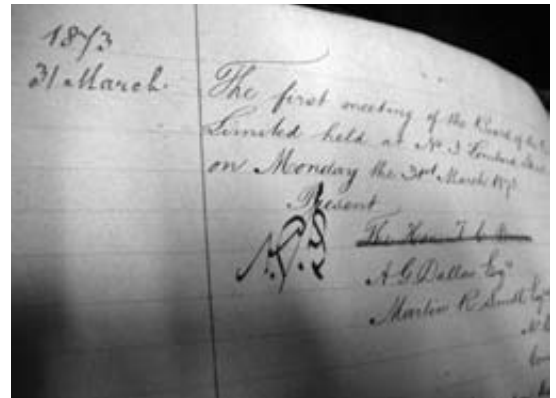 1873
31 March.
The first meeting of the Board of the
Limited held at No 3 Lombard Street
on Monday the 31st March 1873
Present
The Hon
A G Dallas Esqre
Martin R Smith Esqre